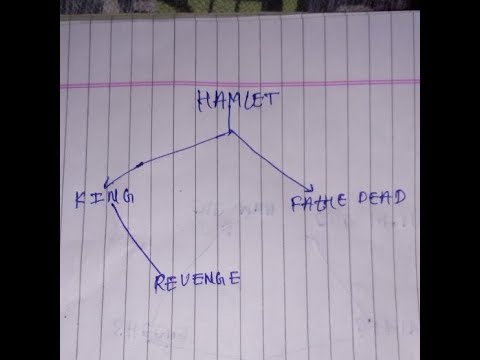 HAMLET
KING
FATHE DEAD
REVENGE